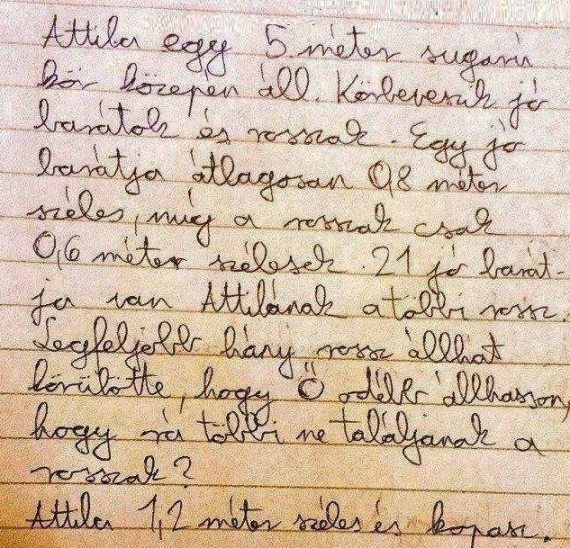 Attila egy 5 méter sugarú
kör közepén áll. Körbeveszik jó
barátok és rosszak. Egy jó
barátja átlagosan 0,8 méter
széles, míg a rosszak csak
0,6 méter szélesek. 21 jó barát-
ja van Attilának a többi rossz.
Legfeljebb hány rossz állhat
körülötte, hogy Ő odébb állhasson,
hogy rá többi ne találjanak a
rosszak?
Attila 1,2 méter széles és kopasz.